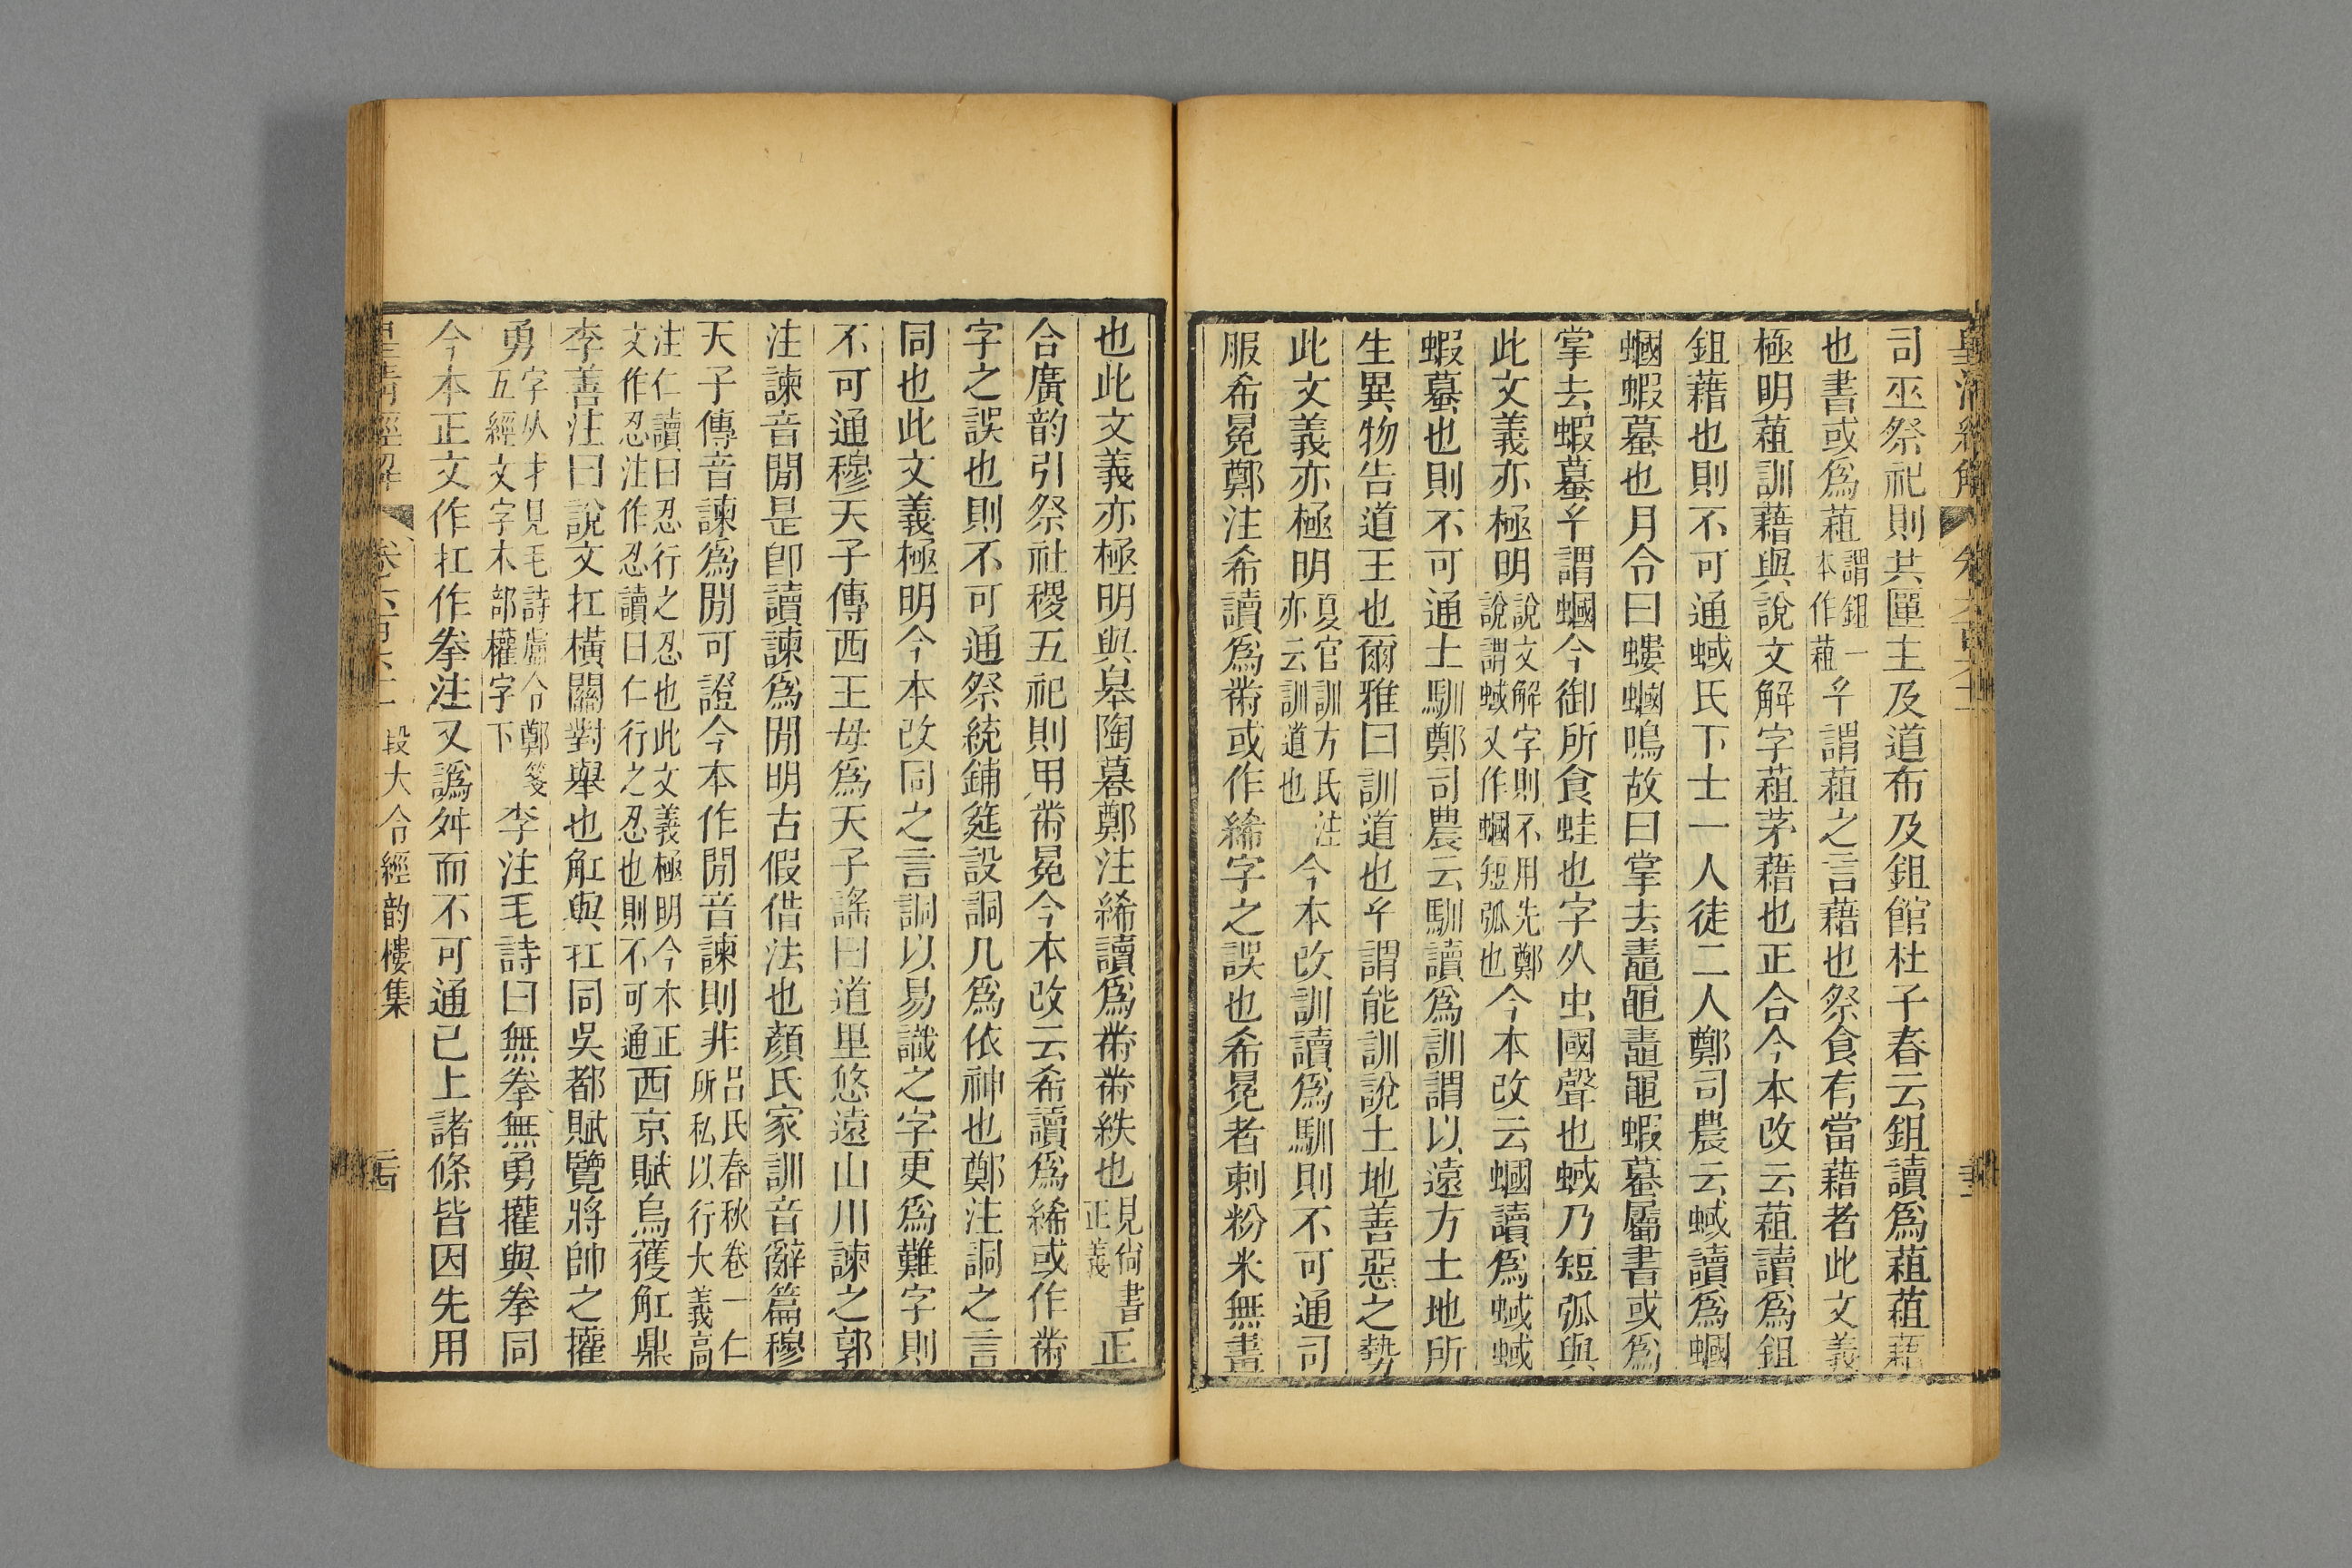 皇清經解
司巫祭祀則共匰主及道布及鉏館杜子春云鉏讀爲蒩蒩藉
也書或爲蒩謂鉏一本作蒩𤣥謂蒩之言藉也祭食有當藉者此文義
極明蒩訓藉與說文解字蒩茅藉也正合今本改云蒩讀爲鉏
鉏藉也則不可通蜮氏下士一人徒二人鄭司農云蜮讀爲蟈
蟈蝦蟇也月令曰螻蟈鳴故曰掌去鼃黽鼃黽蝦蟇屬書或爲
掌去蝦蟇𤣥謂蟈今御所食蛙也字从虫國聲也蜮乃短弧與
此文義亦極明說文解字則不用先鄭說謂蜮又作蟈短弧也今本改云蟈讀爲蜮蜮
蝦蟇也則不可通土馴鄭司農云馴讀爲訓謂以遠方土地所
生異物告道王也爾雅曰訓道也𤣥謂能訓說土地善惡之勢
此文義亦極明夏官訓方氏注亦云訓道也今本改訓讀爲馴則不可通司
服希冕鄭注希讀爲黹或作絺字之誤也希冕者刺粉米無畫
也此文義亦極明與皋陶暮鄭注絺讀爲黹黹紩也見尙書正義正
合廣韵引祭社稷五祀則用黹冕今本改云希讀爲絺或作黹
字之誤也則不可通祭統鋪筵設詷几爲依神也鄭注詷之言
同也此文義極明今本改同之言詷以易識之字更爲難字則
不可通穆天子傳西王母爲天子謠曰道里悠遠山川諫之郭
注諫音閒是卽讀諫爲閒明古假借法也顏氏家訓音辭篇穆
天子傳音諫爲閒可證今本作閒音諫則非呂氏春秋卷一仁所私以行大義高
注仁讀曰忍行之忍也此文義極明今本正文作忍注作忍讀曰仁行之忍也則不可通西京賦烏獲舡鼎
李善注曰說文扛橫關對舉也舡與扛同吳都賦覽將帥之㩲
勇字从才見毛詩盧令鄭箋五經文字木部權字下李注毛詩曰無拳無勇㩲與拳同
今本正文作扛作拳注又譌舛而不可通已上諸條皆因先用
皇清經解
卷六百六十二
段大令經韵樓集